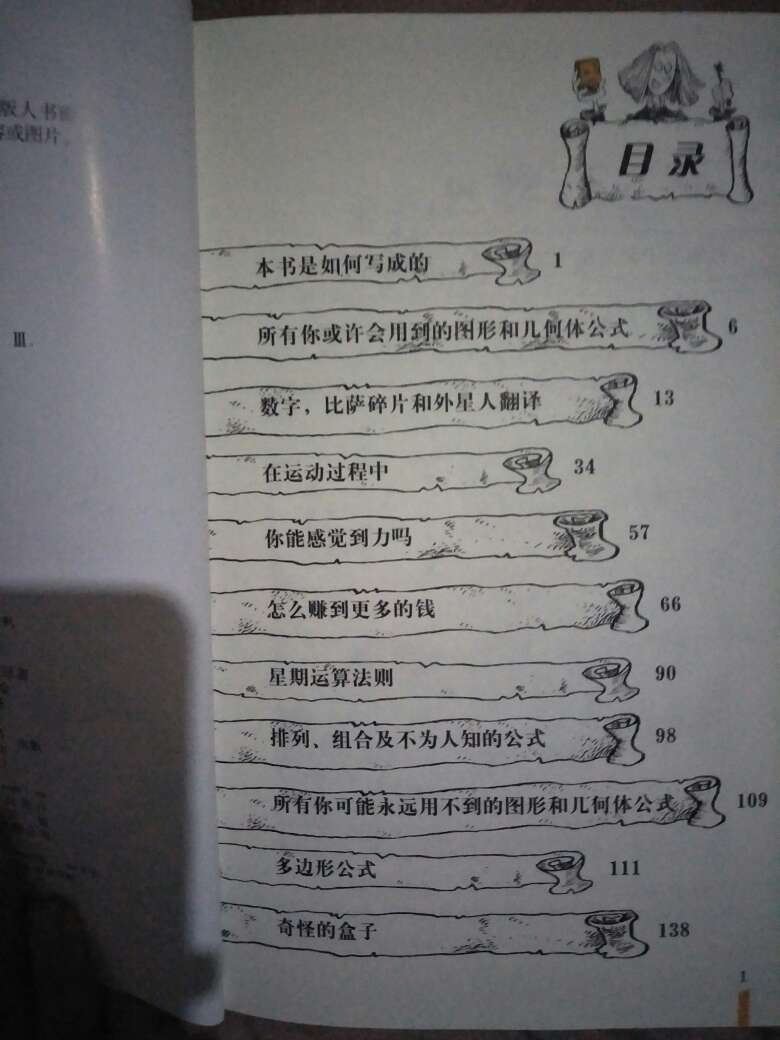 版人书面
或图片。
Ⅲ.
目录
本书是如何写成的 1
所有你或许会用到的图形和几何体公式 6
数字，比萨碎片和外星人翻译 13
在运动过程中 34
你能感觉到力吗 57
怎么赚到更多的钱 66
星期运算法则 90
排列、组合及不为人知的公式 98
所有你可能永远用不到的图形和几何体公式 109
多边形公式 111
奇怪的盒子 138
1